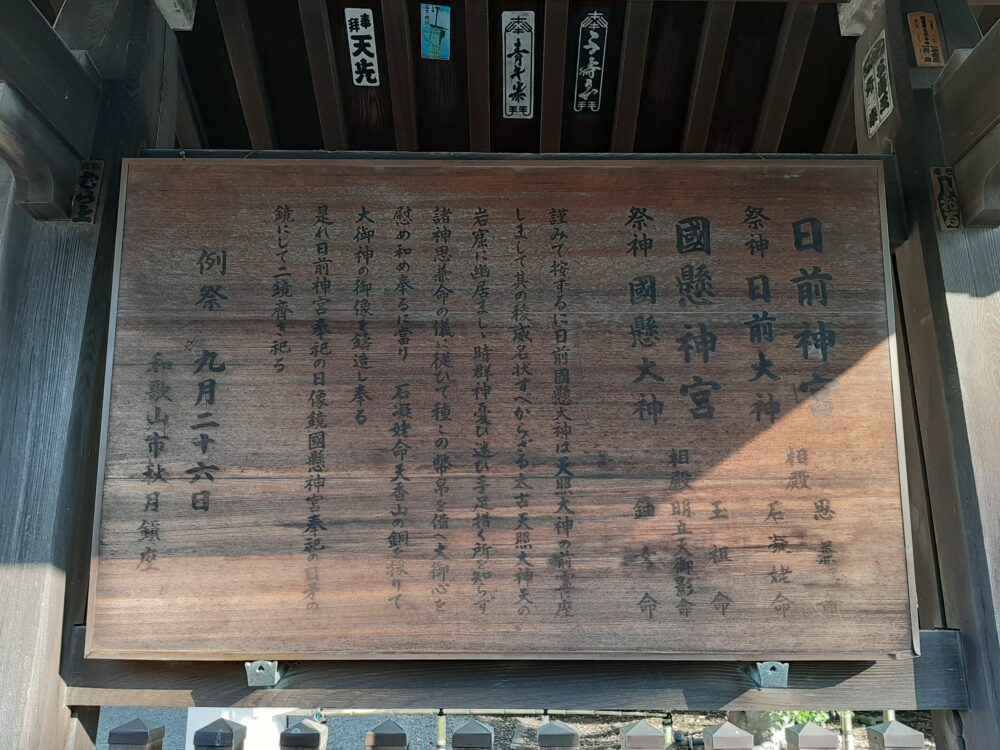 日前神宮
祭神 日前大神
相殿 思兼命
石凝姥命
國懸神宮
祭神 國懸大神
相殿 玉祖命
明立天御影命
鈿女命
謹みて按ずるに日前國懸大神は天照大神の前霊に座
しまして其の稜威名状すべからざる太古天照大神天の
岩窟に幽居ましゝ時群神憂ひ迷ひ手足措く所を知らず
諸神思兼命の議に従ひて種々の幣帛を備へ大御心を
慰め和め奉るに當り 石凝姥命天香山の銅を採りて
大御神の御像を鋳造し奉る
是れ日前神宮奉祀の日像鏡國懸神宮奉祀の日矛の
鏡にして二鏡齋き祀る
例祭 九月二十六日
和歌山市秋月鎮座
奉拜
天光